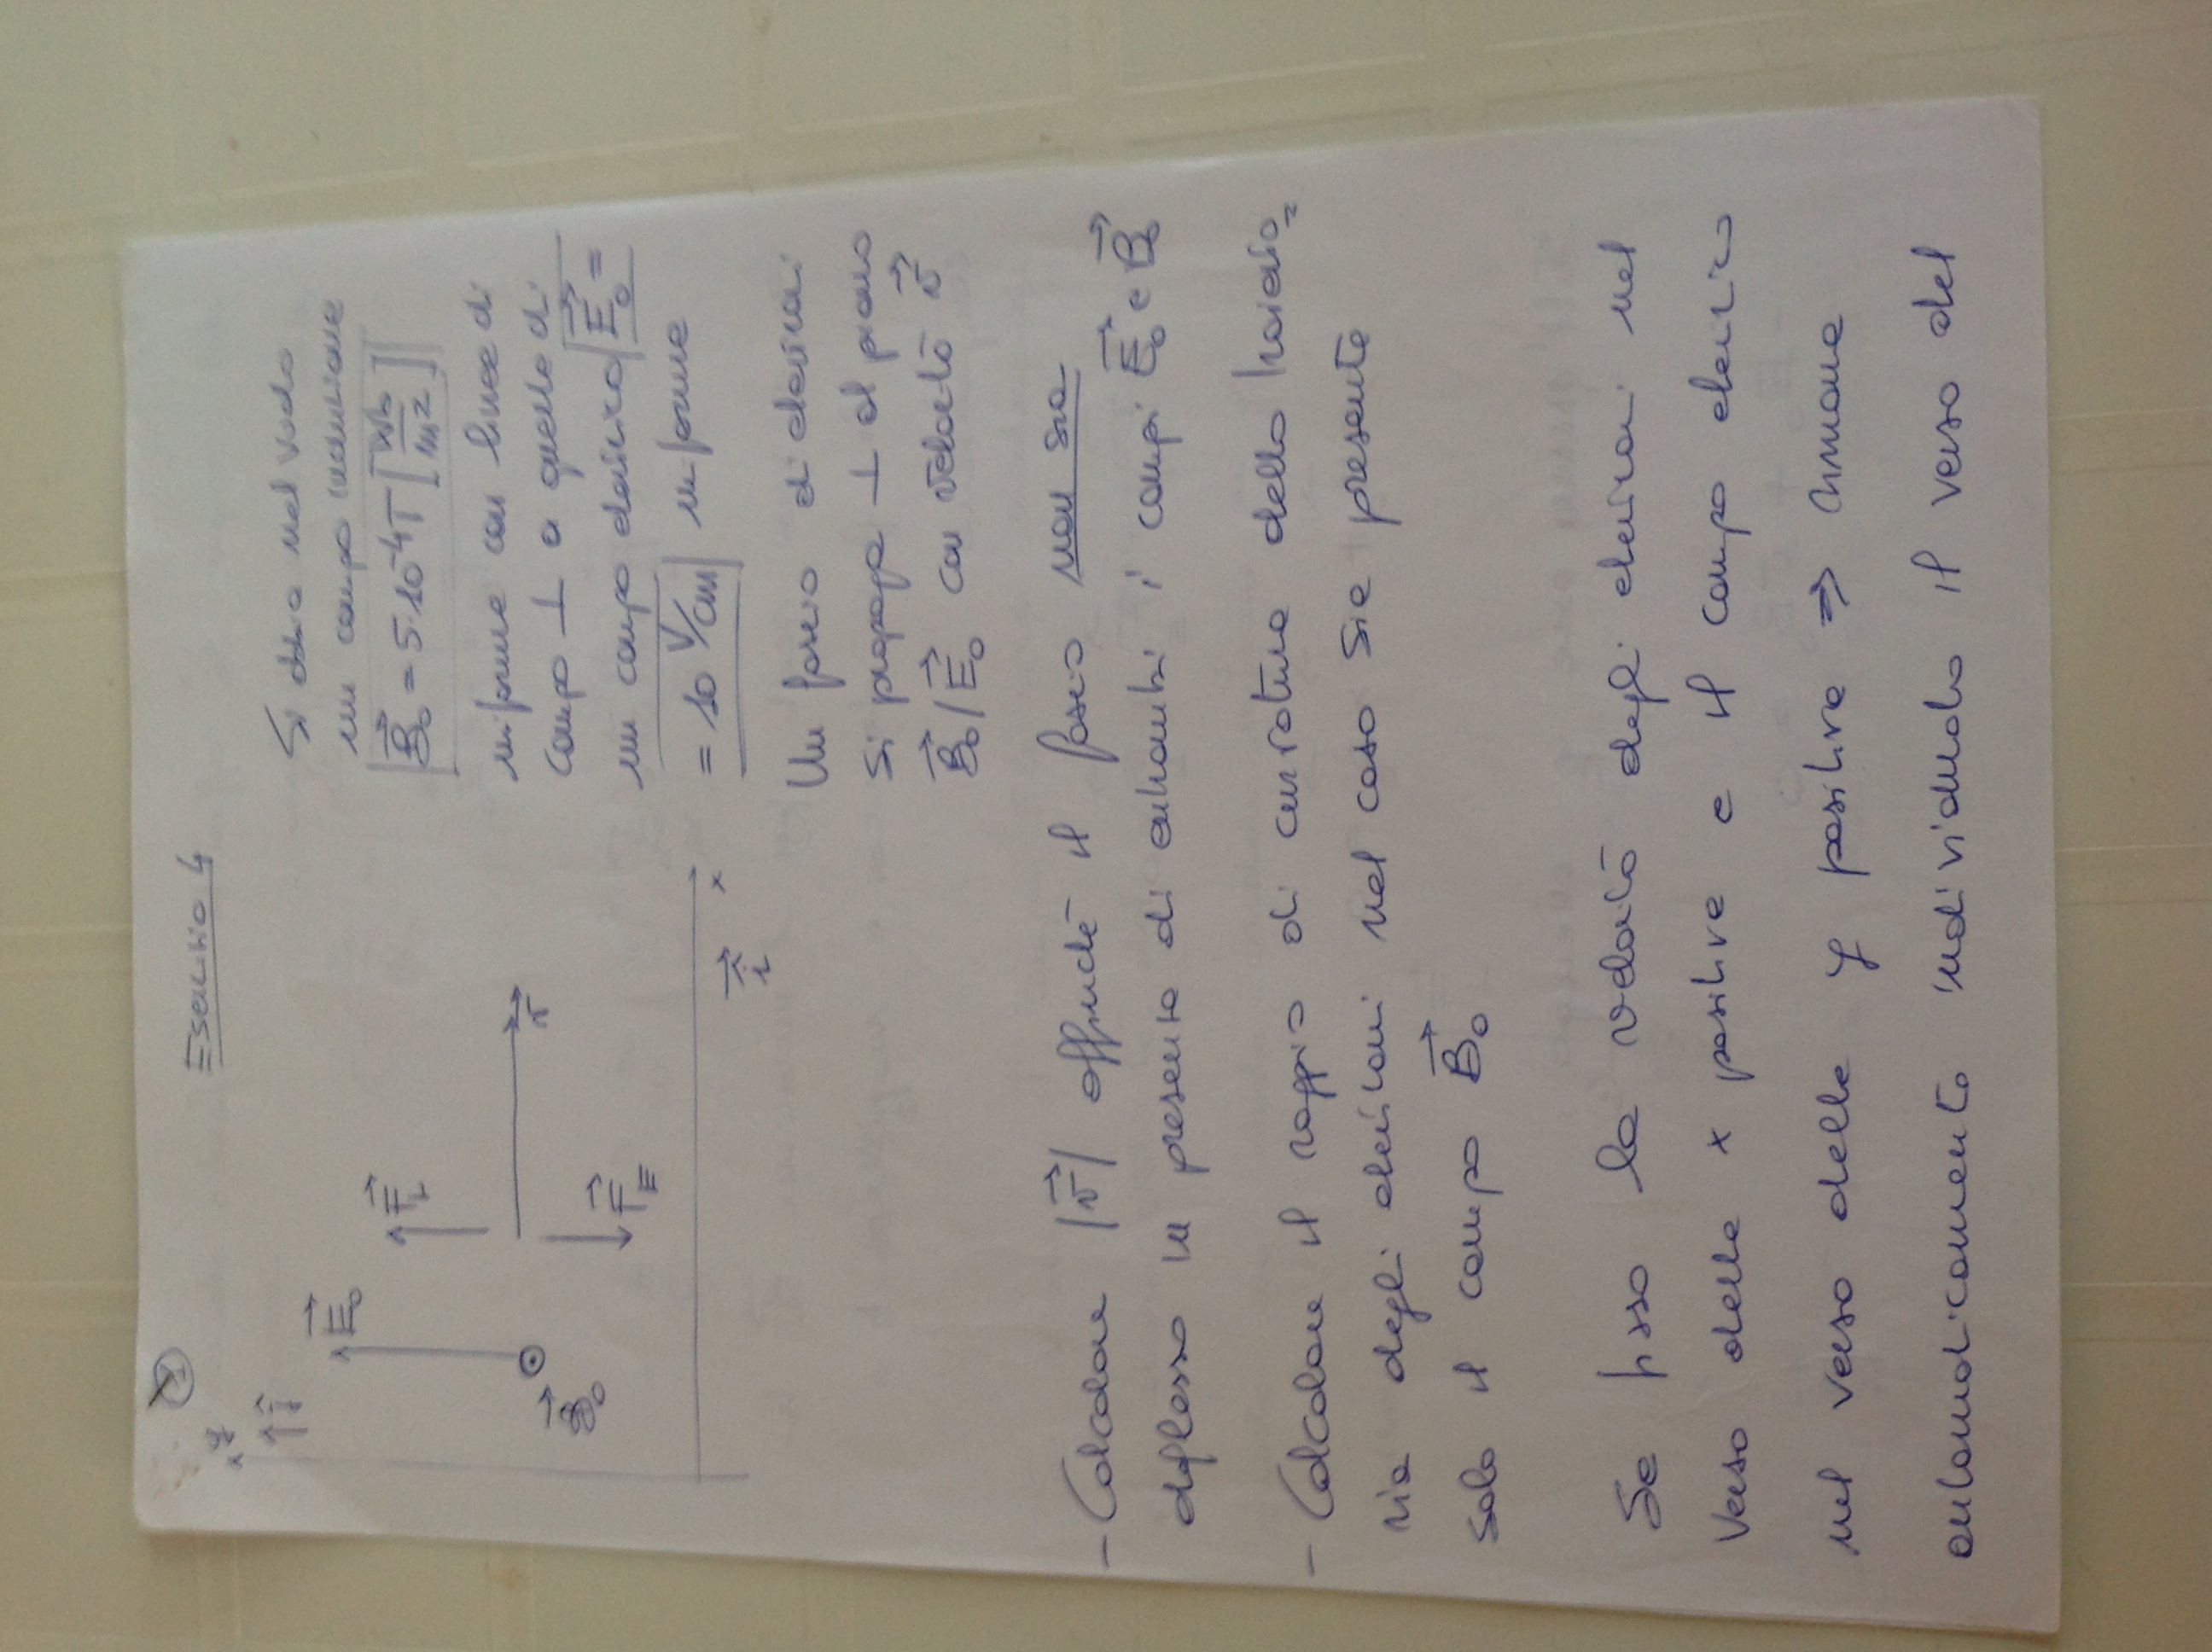 1
Esercizio 4
y
ĵ
E₀
F_L
v
B₀
F_E
x
î
Si abbia nel vuoto
un campo induzione
B₀ = 5·10⁻⁴T [Wb/m²]
uniforme con linee di
campo ⊥ a quelle di
un campo elettrico E₀ =
= 10 V/cm uniforme
Un fascio di elettroni
si propaga ⊥ al piano
B₀/E₀ con velocità v
- Calcolare |v| affinché il fascio non sia
deflesso in presenza di entrambi i campi E₀ e B₀
- Calcolare il raggio di curvatura della traietto=
ria degli elettroni nel caso sia presente
solo il campo B₀
Se fisso la velocità degli elettroni nel
verso delle x positive e il campo elettrico
nel verso delle y positive ⇒ rimane
automaticamente individuato il verso del